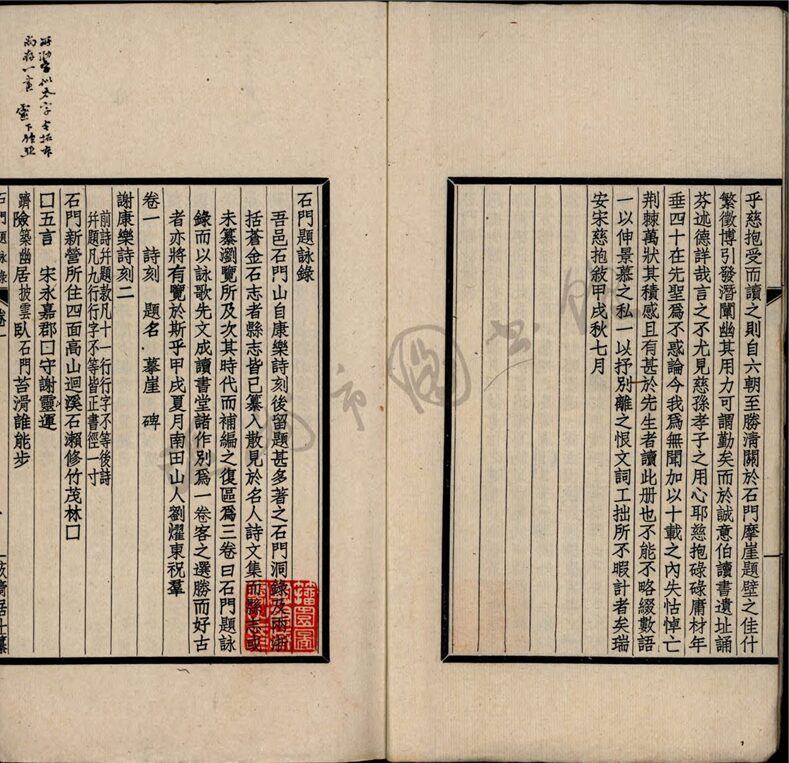 乎慈抱受而讀之則自六朝至勝淸關於石門摩崖題壁之佳什
繁徵博引發潛闡幽其用力可謂勤矣而於誠意伯讀書遺址誦
芬述德詳哉言之不尤見慈孫孝子之用心耶慈抱碌碌庸材年
垂四十在先聖爲不惑論今我爲無聞加以十載之內失怙悼亡
荆棘萬狀其積感且有甚於先生者讀此册也不能不略綴數語
一以伸景慕之私一以抒別離之恨文詞工拙所不暇計者矣瑞
安宋慈抱敘甲戌秋七月
石門題詠錄
吾邑石門山自康樂詩刻後留題甚多著之石門洞錄及兩浙
括蒼金石志者縣志皆已纂入散見於名人詩文集而縣志或
未纂瀏覽所及次其時代而補編之復區爲三卷曰石門題詠
錄而以詠歌先文成讀書堂諸作別爲一卷客之選勝而好古
者亦將有覽於斯乎甲戌夏月南田山人劉燿東祝羣
卷一 詩刻 題名 摹崖 碑
謝康樂詩刻二
前詩幷題款凡十一行行字不等後詩
幷題凡九行行字不等皆正書徑一寸
石門新營所住四面高山迴溪石瀨修竹茂林口
口五言 宋永嘉郡口守謝靈運
躋險築幽居披雲臥石門苔滑誰能步
石門題詠錄 卷一
尚存一亩